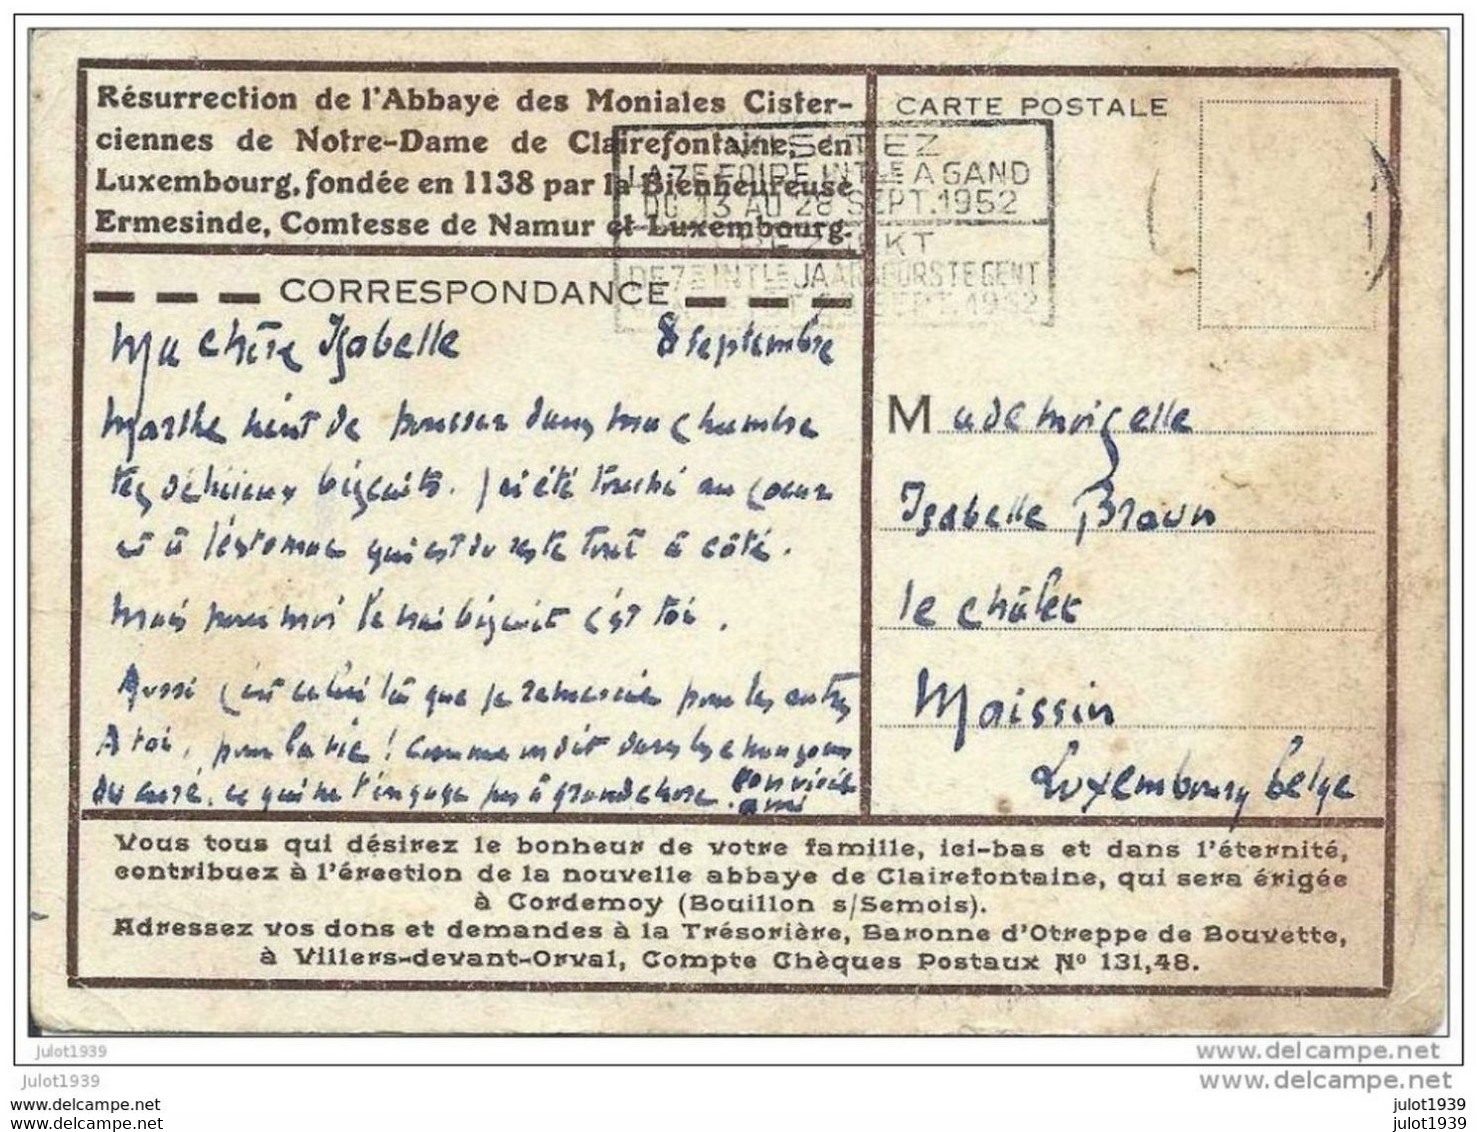 Résurrection de l'Abbaye des Moniales Cister-
ciennes de Notre-Dame de Clairefontaine, en
Luxembourg, fondée en 1138 par la Bienheureuse
Ermesinde, Comtesse de Namur et Luxembourg.
CARTE POSTALE
VISITEZ
LA 7E FOIRE INTLE A GAND
DU 13 AU 28 SEPT. 1952
BEZOEKT
DE 7E INTLE JAARBEURS TE GENT
SEPT. 1952
CORRESPONDANCE
Ma chère Isabelle 8 septembre
Marthe vient de pousser dans ma chambre
tes délicieux biscuits. J'ai été touché au coeur
et à l'estomac qui est du reste tout à côté.
Mais pour moi le vrai biscuit c'est toi.
Aussi c'est celui là que je remercie pour les autres
A toi, pour la vie ! Comme on dit dans les chansons
du curé, ce qui ne t'engage pas à grand chose. ton vieil
ami
Mademoiselle
Isabelle Braun
le châlet
Maissin
Luxembourg belge
Vous tous qui désirez le bonheur de votre famille, ici-bas et dans l'éternité,
contribuez à l'érection de la nouvelle abbaye de Clairefontaine, qui sera érigée
à Cordemoy (Bouillon s/Semois).
Adressez vos dons et demandes à la Trésorière, Baronne d'Otreppe de Bouvette,
à Villers-devant-Orval, Compte Chèques Postaux Nº 131,48.
julot1939
www.delcampe.net
julot1939
www.delcampe.net
www.delcampe.net
julot1939
www.delcampe.net
julot1939